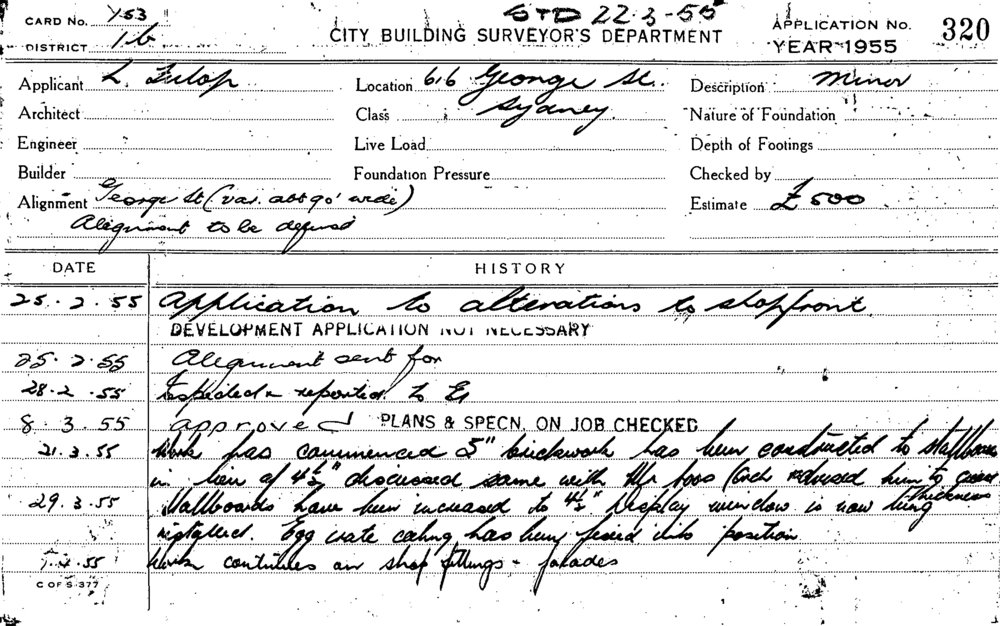 STD 22.3-55
CARD No. Y53
DISTRICT 1b
CITY BUILDING SURVEYOR'S DEPARTMENT
APPLICATION No. 320
YEAR 1955
Applicant L. Fulop
Location 616 George St.
Description Minor
Architect
Class Sydney
Nature of Foundation
Engineer
Live Load
Depth of Footings
Builder
Foundation Pressure
Checked by
Alignment George St (var. abt 90' wide)
Estimate £500
Alignment to be defined
DATE HISTORY
25.2.55 Application to alterations to shopfront
DEVELOPMENT APPLICATION NOT NECESSARY
25.2.55 Alignment sent for
28.2.55 Inspected & reported to
8.3.55 approved PLANS & SPECN. ON JOB CHECKED
21.3.55 Work has commenced 3" brickwork has been constructed to stallboards
in lieu of 4½" discussed same with Mr and advised him to
thickness
29.3.55 Stallboards have been increased to 4½" Display window is now being
installed. Egg crate ceiling has been fixed into position
.4.55 Work continues on shop fittings - facades
C OF S 377